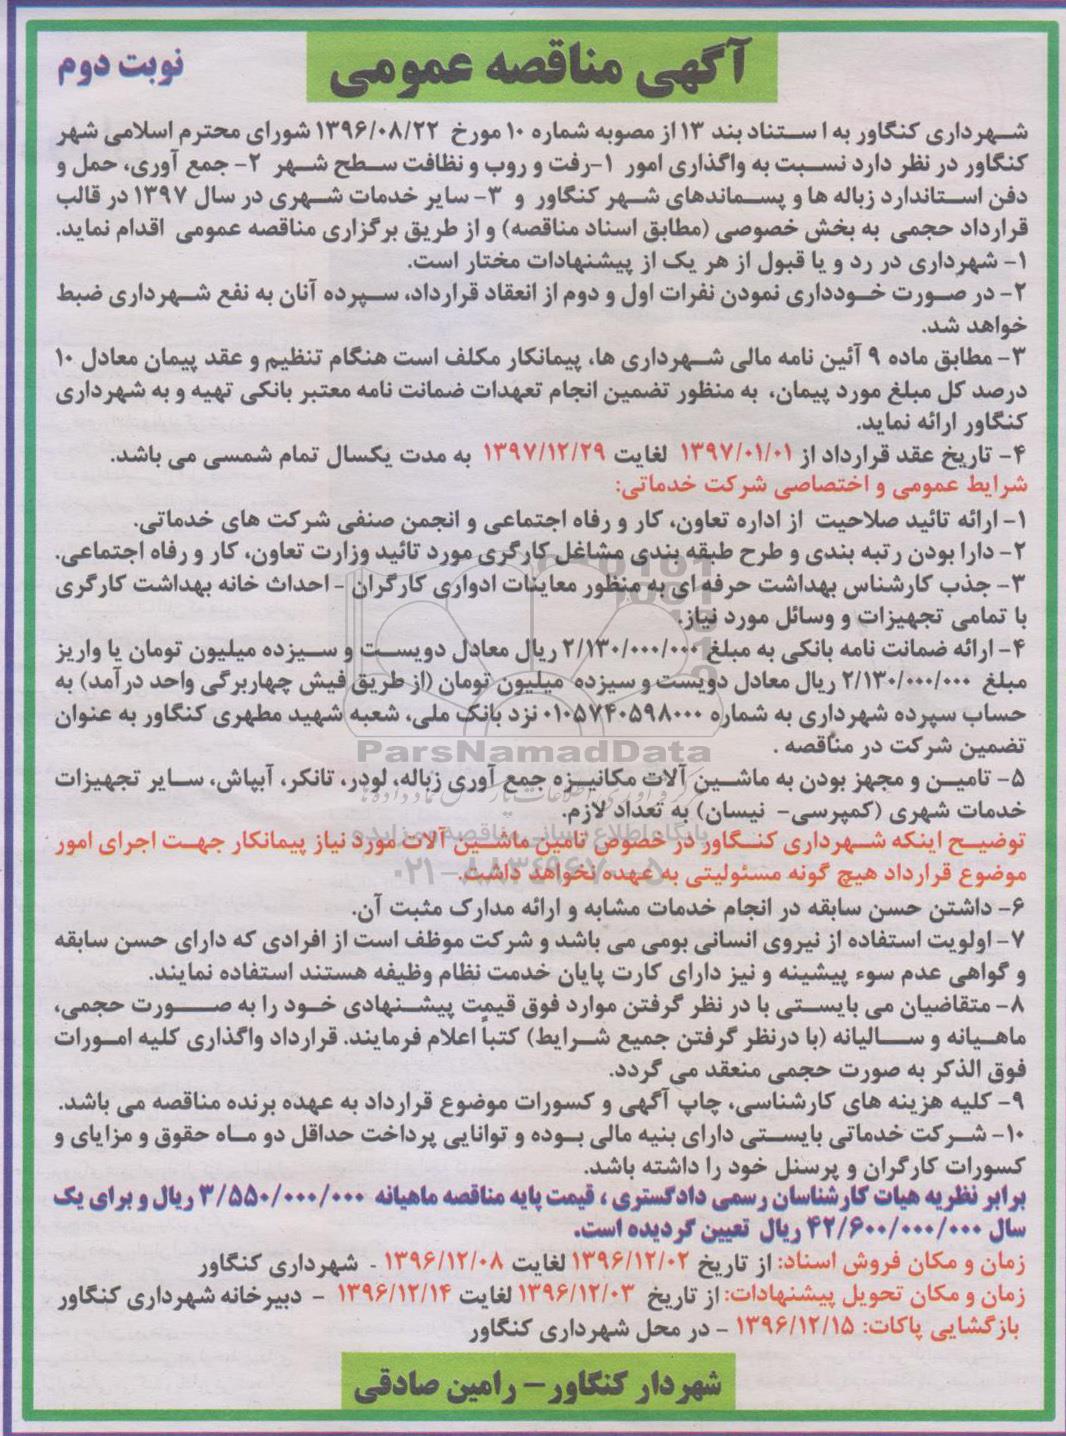 آگهی مناقصه عمومی
نوبت دوم
شهرداری کنگاور به استناد بند ۱۳ از مصوبه شماره ۱۰ مورخ ۱۳۹۶/۰۸/۲۲ شورای محترم اسلامی شهر
کنگاور در نظر دارد نسبت به واگذاری امور ۱-رفت و روب و نظافت سطح شهر ۲- جمع آوری، حمل و
دفن استاندارد زباله ها و پسماندهای شهر کنگاور و ۳- سایر خدمات شهری در سال ۱۳۹۷ در قالب
قرارداد حجمی به بخش خصوصی (مطابق اسناد مناقصه) و از طریق برگزاری مناقصه عمومی اقدام نماید.
۱- شهرداری در رد و یا قبول از هر یک از پیشنهادات مختار است.
۲- در صورت خودداری نمودن نفرات اول و دوم از انعقاد قرارداد، سپرده آنان به نفع شهرداری ضبط
خواهد شد.
۳- مطابق ماده ۹ آئین نامه مالی شهرداری ها، پیمانکار مکلف است هنگام تنظیم و عقد پیمان معادل ۱۰
درصد کل مبلغ مورد پیمان، به منظور تضمین انجام تعهدات ضمانت نامه معتبر بانکی تهیه و به شهرداری
کنگاور ارائه نماید.
۴- تاریخ عقد قرارداد از ۱۳۹۷/۰۱/۰۱ لغایت ۱۳۹۷/۱۲/۲۹ به مدت یکسال تمام شمسی می باشد.
شرایط عمومی و اختصاصی شرکت خدماتی:
۱- ارائه تائید صلاحیت از اداره تعاون، کار و رفاه اجتماعی و انجمن صنفی شرکت های خدماتی.
۲- دارا بودن رتبه بندی و طرح طبقه بندی مشاغل کارگری مورد تائید وزارت تعاون، کار و رفاه اجتماعی.
۳- جذب کارشناس بهداشت حرفه ای به منظور معاینات ادواری کارگران - احداث خانه بهداشت کارگری
با تمامی تجهیزات و وسائل مورد نیاز.
۴- ارائه ضمانت نامه بانکی به مبلغ ۲/۱۳۰/۰۰۰/۰۰۰ ریال معادل دویست و سیزده میلیون تومان یا واریز
مبلغ ۲/۱۳۰/۰۰۰/۰۰۰ ریال معادل دویست و سیزده میلیون تومان (از طریق فیش چهاربرگی واحد درآمد) به
حساب سپرده شهرداری به شماره ۰۱۰۵۷۴۰۵۹۸۰۰۰ نزد بانک ملی، شعبه شهید مطهری کنگاور به عنوان
تضمین شرکت در مناقصه .
ParsNamadData
۵- تامین و مجهز بودن به ماشین آلات مکانیزه جمع آوری زباله، لودر، تانکر، آبپاش، سایر تجهیزات
خدمات شهری (کمپرسی- نیسان) به تعداد لازم.
توضیح اینکه شهرداری کنگاور در خصوص تامین ماشین آلات مورد نیاز پیمانکار جهت اجرای امور
موضوع قرارداد هیچ گونه مسئولیتی به عهده نخواهد داشت.
۰۲۱-۸۸۳۴۹۶۷۰-۵
۶- داشتن حسن سابقه در انجام خدمات مشابه و ارائه مدارک مثبت آن.
۷- اولویت استفاده از نیروی انسانی بومی می باشد و شرکت موظف است از افرادی که دارای حسن سابقه
و گواهی عدم سوء پیشینه و نیز دارای کارت پایان خدمت نظام وظیفه هستند استفاده نمایند.
۸- متقاضیان می بایستی با در نظر گرفتن موارد فوق قیمت پیشنهادی خود را به صورت حجمی،
ماهیانه و سالیانه (با درنظر گرفتن جمیع شرایط) کتباً اعلام فرمایند. قرارداد واگذاری کلیه امورات
فوق الذکر به صورت حجمی منعقد می گردد.
۹- کلیه هزینه های کارشناسی، چاپ آگهی و کسورات موضوع قرارداد به عهده برنده مناقصه می باشد.
۱۰- شرکت خدماتی بایستی دارای بنیه مالی بوده و توانایی پرداخت حداقل دو ماه حقوق و مزایای و
کسورات کارگران و پرسنل خود را داشته باشد.
برابر نظریه هیات کارشناسان رسمی دادگستری ، قیمت پایه مناقصه ماهیانه ۳/۵۵۰/۰۰۰/۰۰۰ ریال و برای یک
سال ۴۲/۶۰۰/۰۰۰/۰۰۰ ریال تعیین گردیده است.
زمان و مکان فروش اسناد: از تاریخ ۱۳۹۶/۱۲/۰۲ لغایت ۱۳۹۶/۱۲/۰۸ - شهرداری کنگاور
زمان و مکان تحویل پیشنهادات: از تاریخ ۱۳۹۶/۱۲/۰۳ لغایت ۱۳۹۶/۱۲/۱۴ - دبیرخانه شهرداری کنگاور
بازگشایی پاکات: ۱۳۹۶/۱۲/۱۵ - در محل شهرداری کنگاور
شهردار کنگاور- رامین صادقی